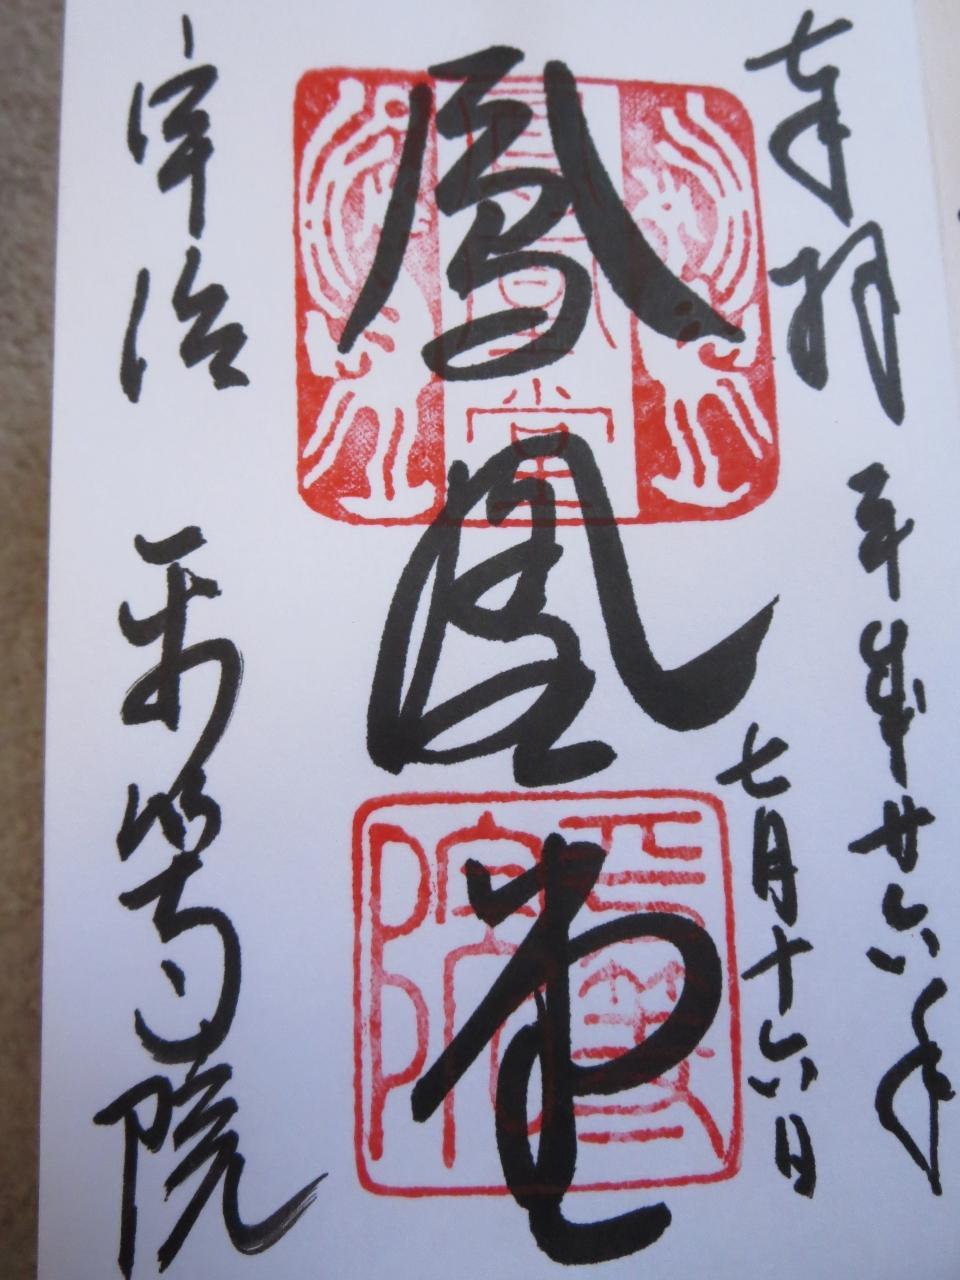 奉拝
平成廿六年
七月十六日
鳳凰堂
鳳凰堂
平等院
宇治 平等院